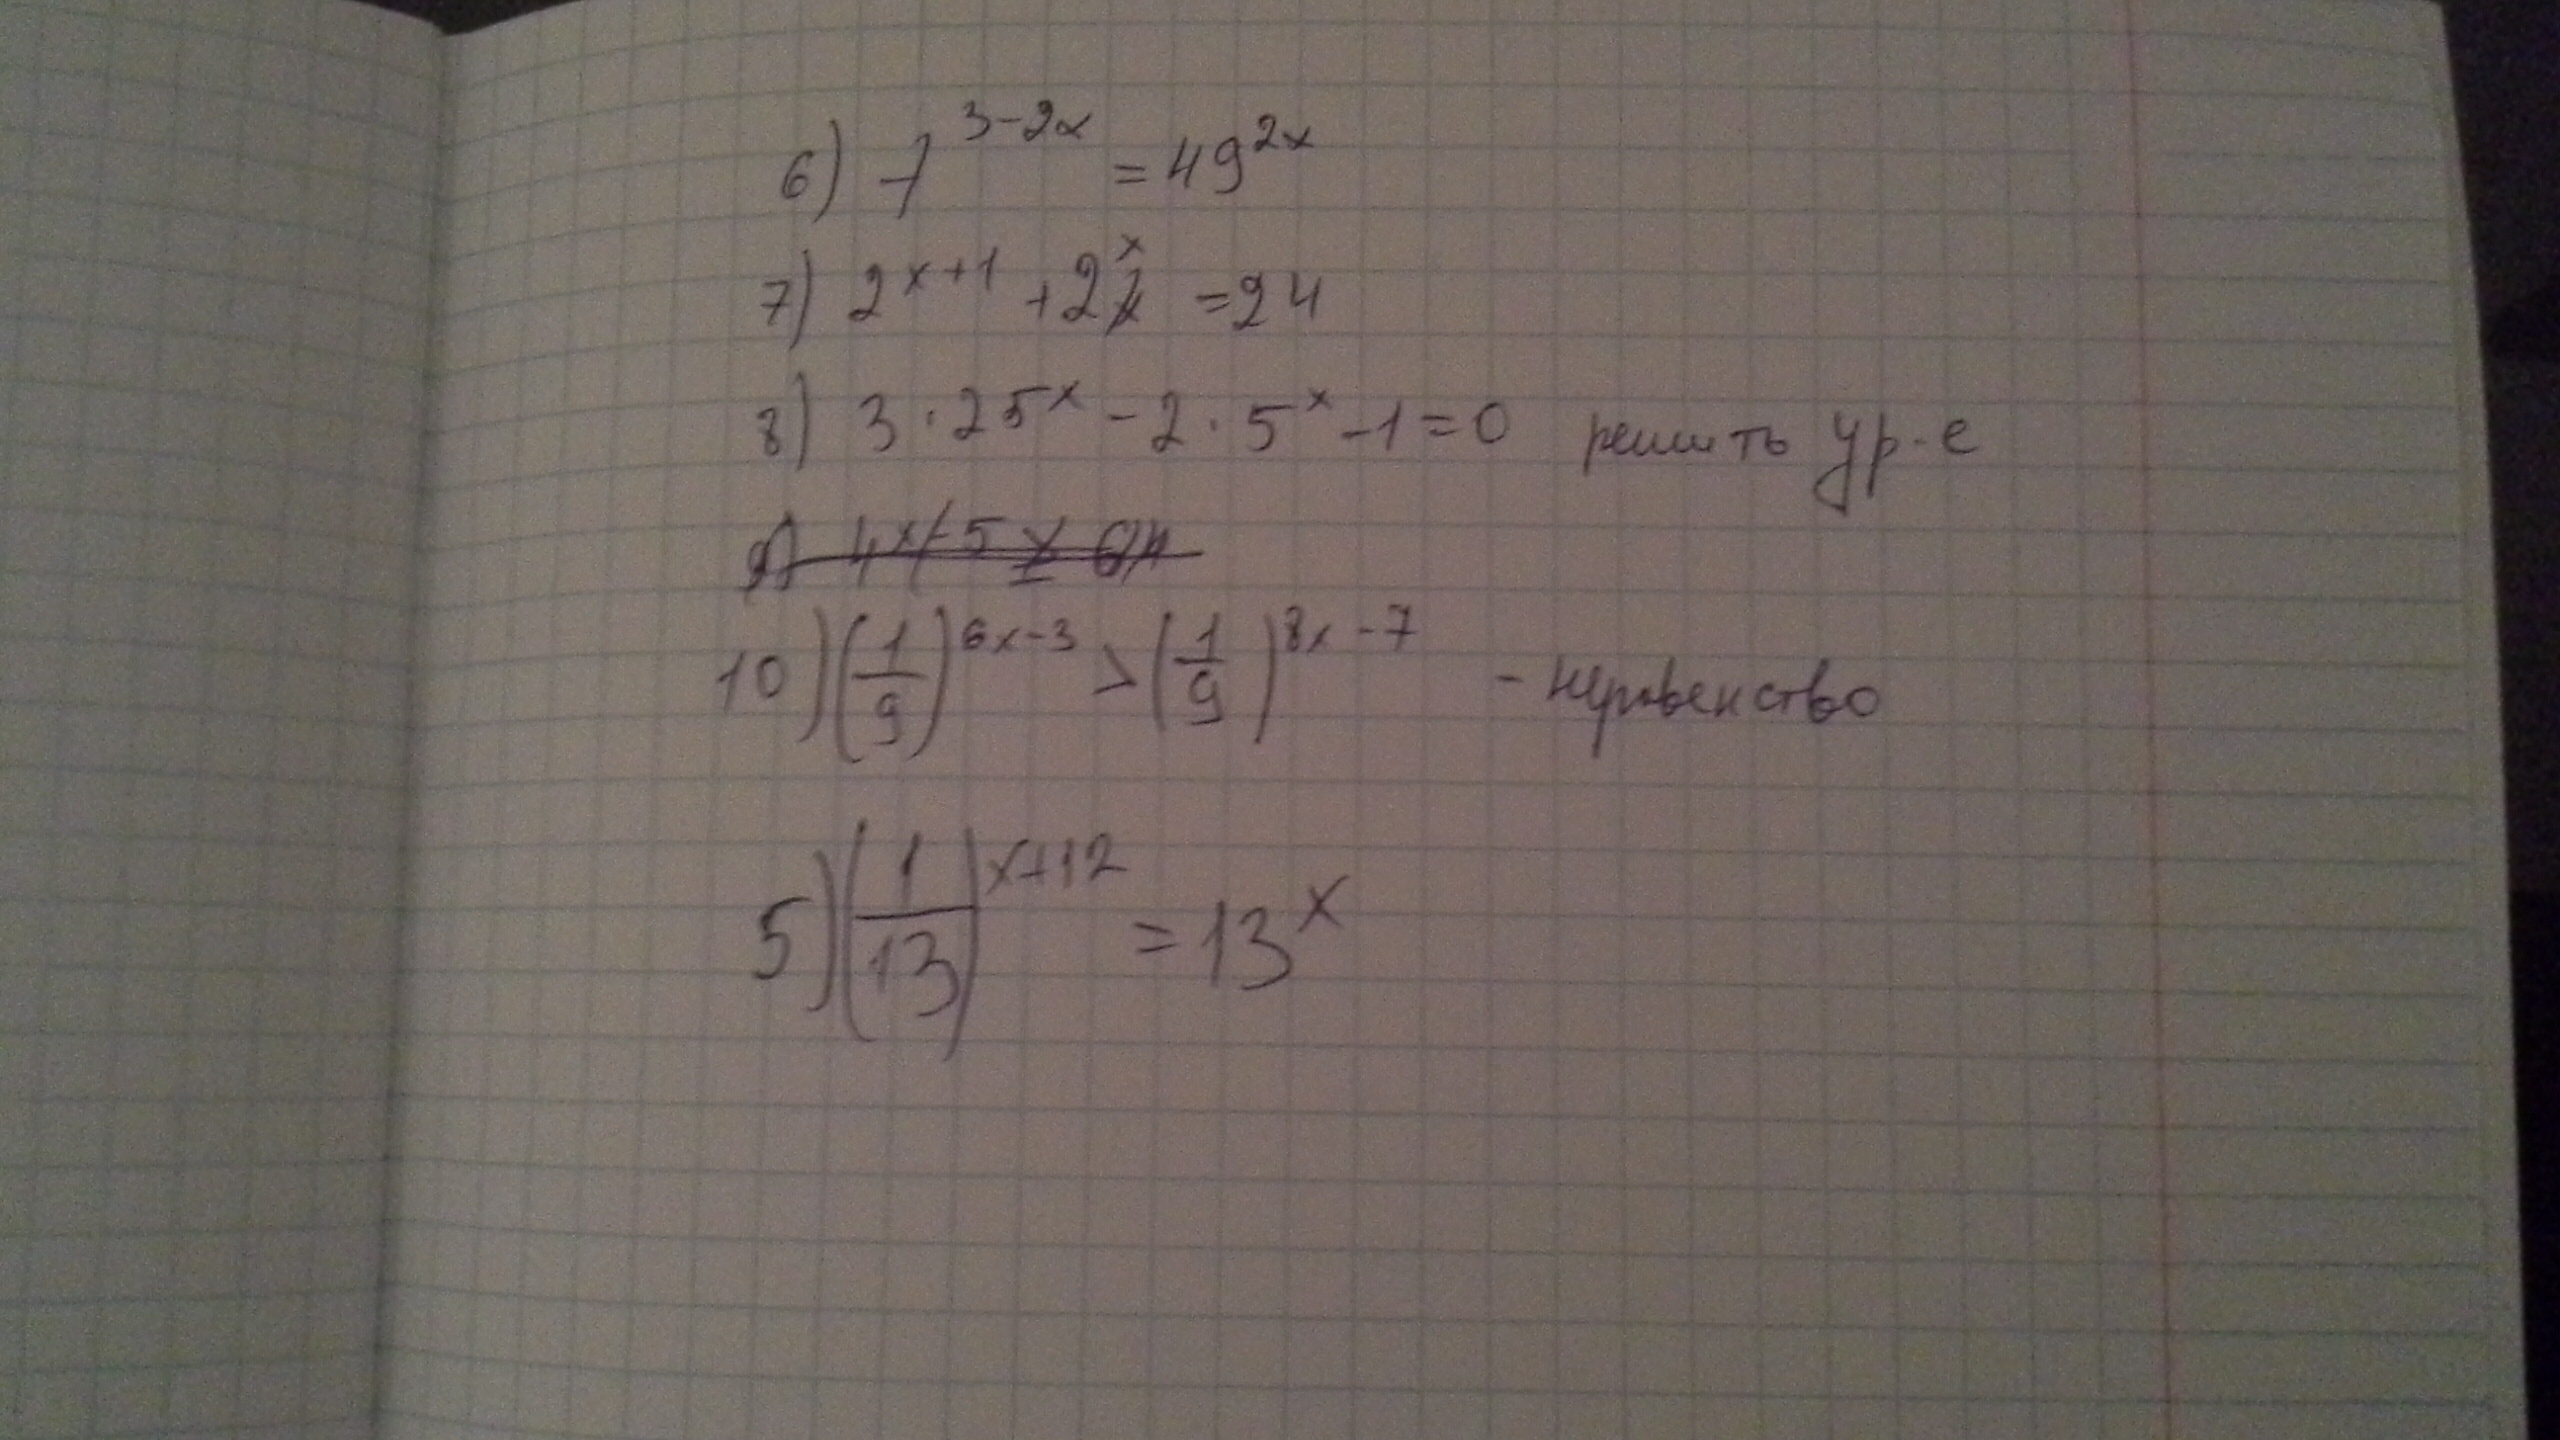 6) 7^{3-2x} = 49^{2x}
7) 2^{x+1} + 2^{x} = 24
8) 3 · 25^{x} - 2 · 5^{x} - 1 = 0 решить ур-е
10) (1/9)^{6x-3} > (1/9)^{8x-7} - неравенство
5) (1/13)^{x+12} = 13^{x}